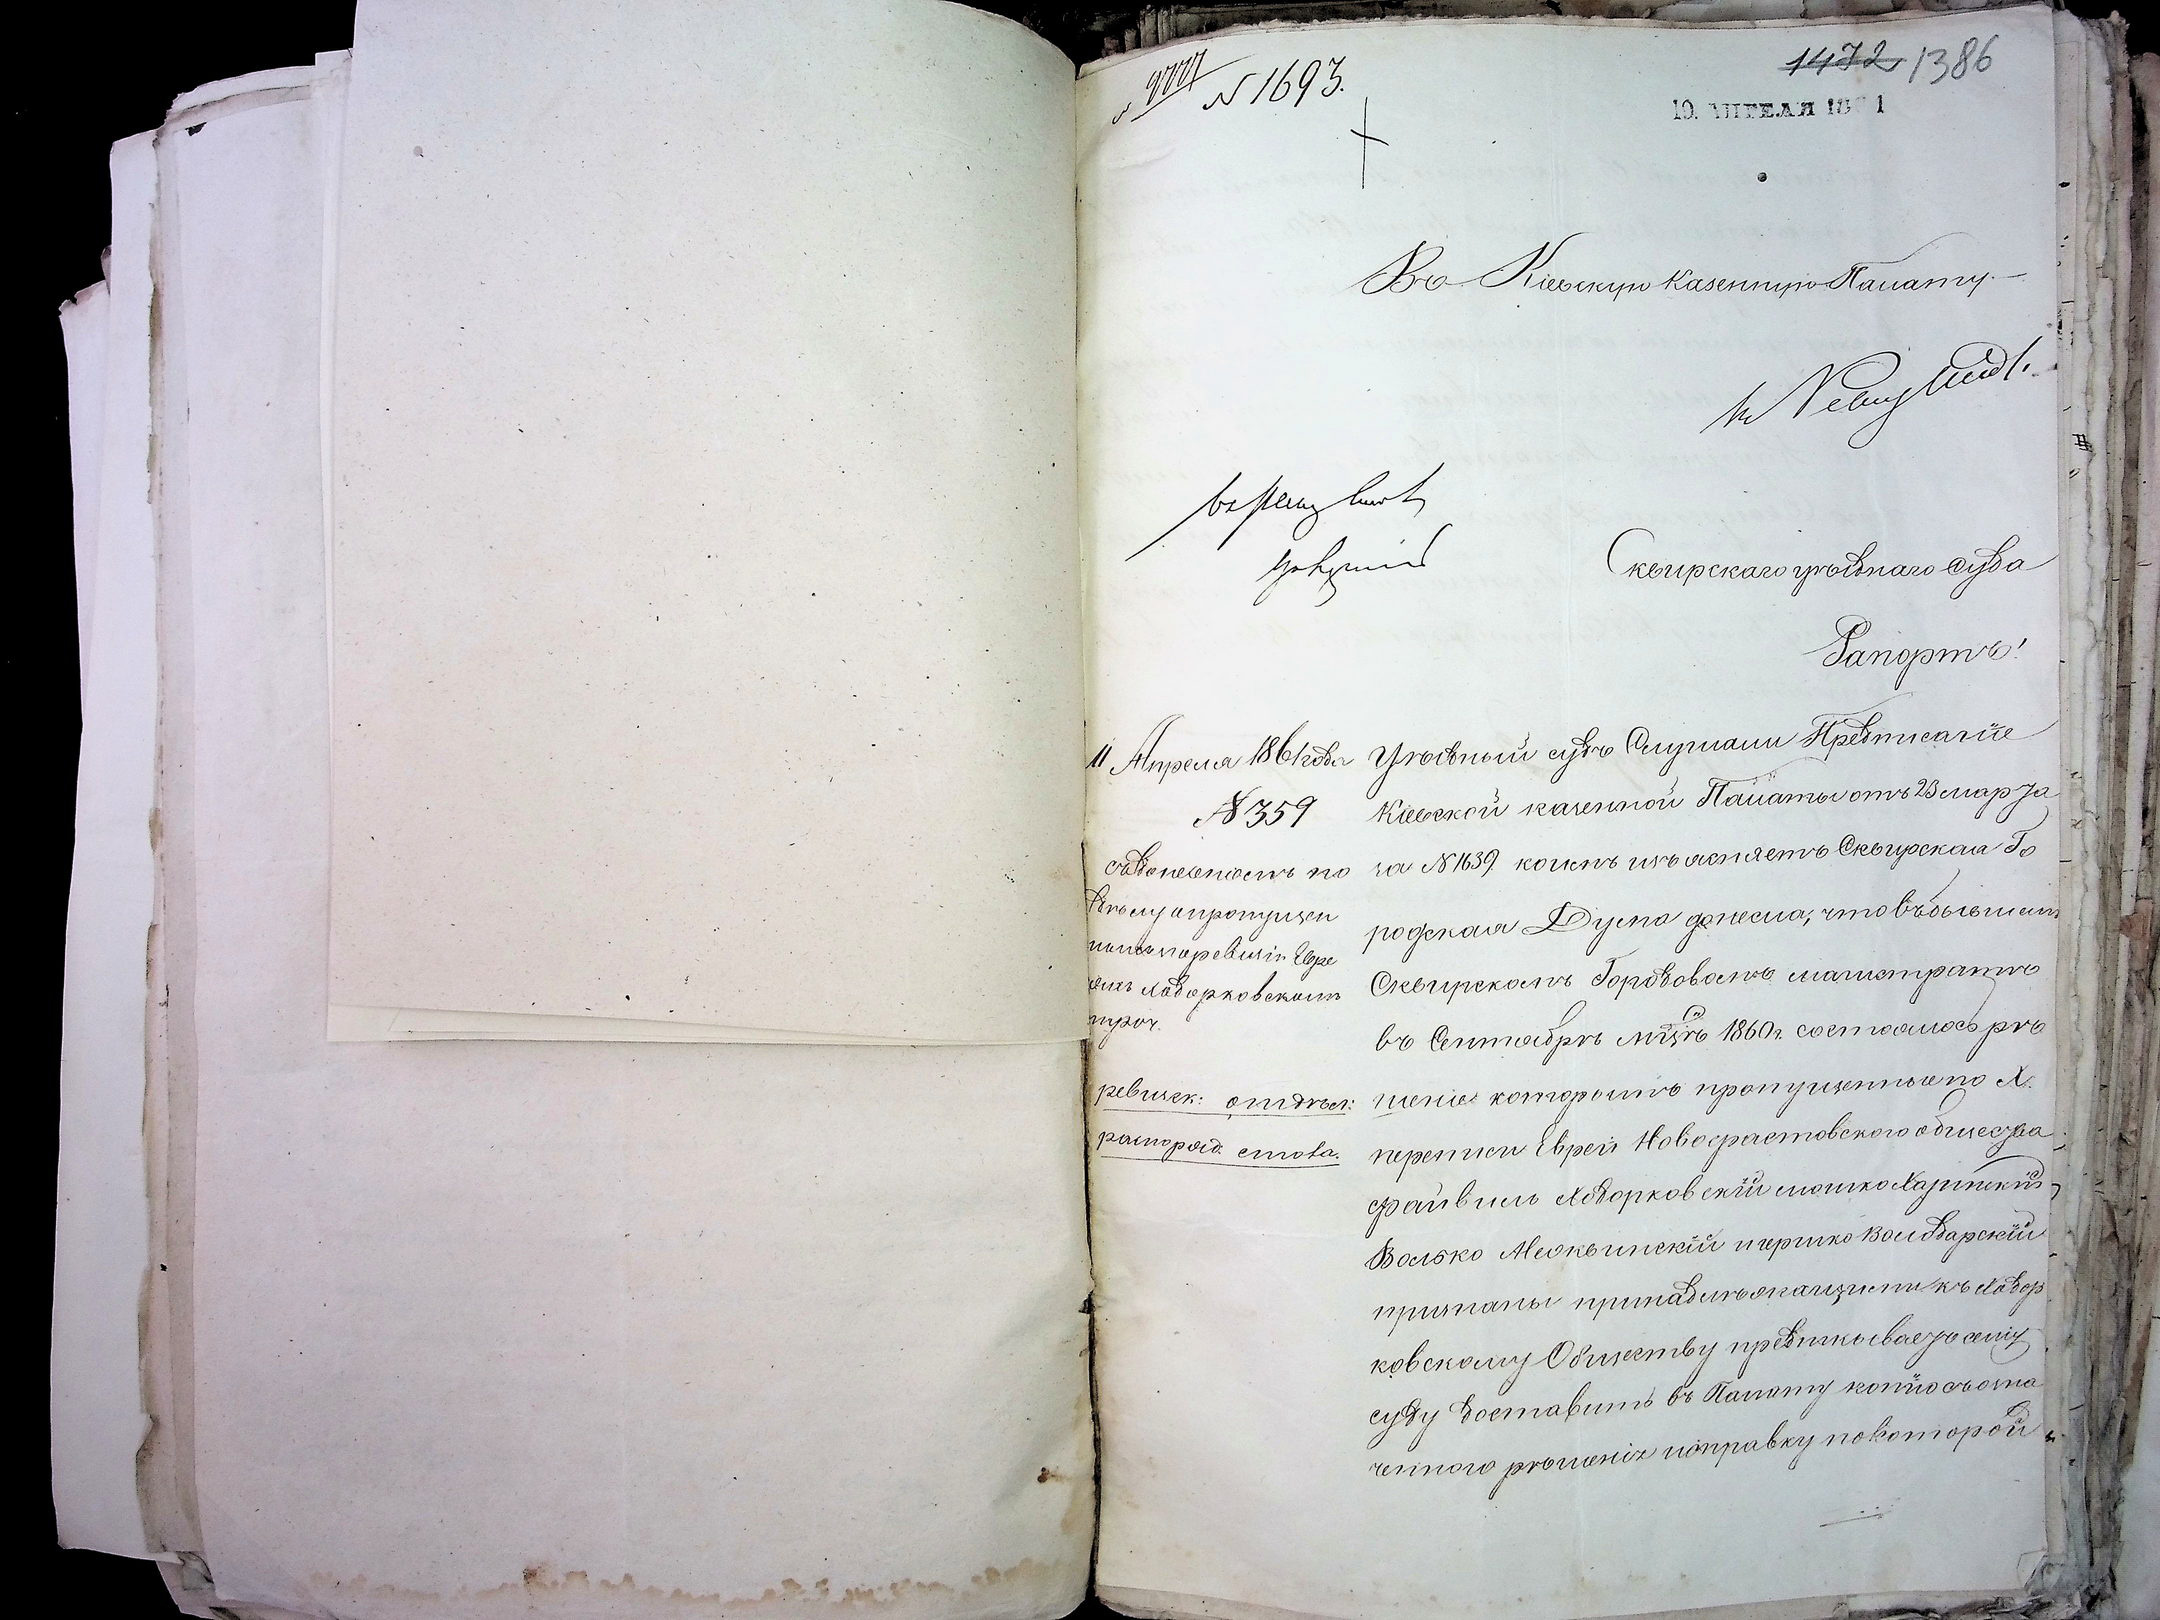 N 1693.
1472 1386
19. АПРЕЛЯ 18 1
Въ Кіевскую Казенную Палату
Сквирскаго уѣзднаго Суда
Рапортъ!
11 Апреля 1861 года
N 359
съ донесеніемъ по
дѣлу о пропущен
ныхъ по ревизіи Евре
яхъ Ходорковскомъ
и проч.
ревизск: отдѣл:
распоряд. стола.
Уѣздный судъ Слушали Предписаніе
Кіевской казенной Палаты отъ 23 марта
за N 1639. коимъ изъясняетъ Сквирская Го
родская Дума донесла, что въ бывшемъ
Сквирскомъ Городовомъ магистратѣ
въ Сентябрѣ мцѣ 1860 г. состоялось рѣ
шеніе которымъ пропущенные по X.
переписи Евреи Новофастовского общества
Файвиль Ходорковскій мошко
Волько и гершко Володарскій
признаны принадлѣжащими къ Ходор
ковскому Обществу предписываетъ сему
суду доставить въ Палату копію съ озна
ченного рѣшенія и справку по которой